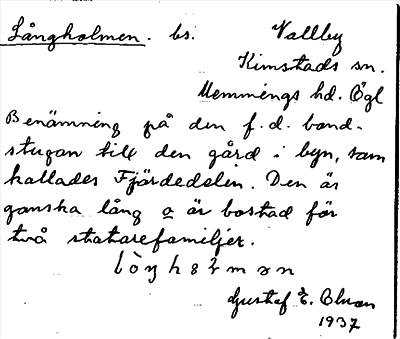 Långholmen. bs. Vallby
Kimstads sn.
Memmings hd. Ögl
Benämning på den f.d. band-
stugan till den gård i byn, som
kallades Fjärdedelen. Den är
ganska lång o är bostad för
två statarefamiljer.
Gustaf E.
1937